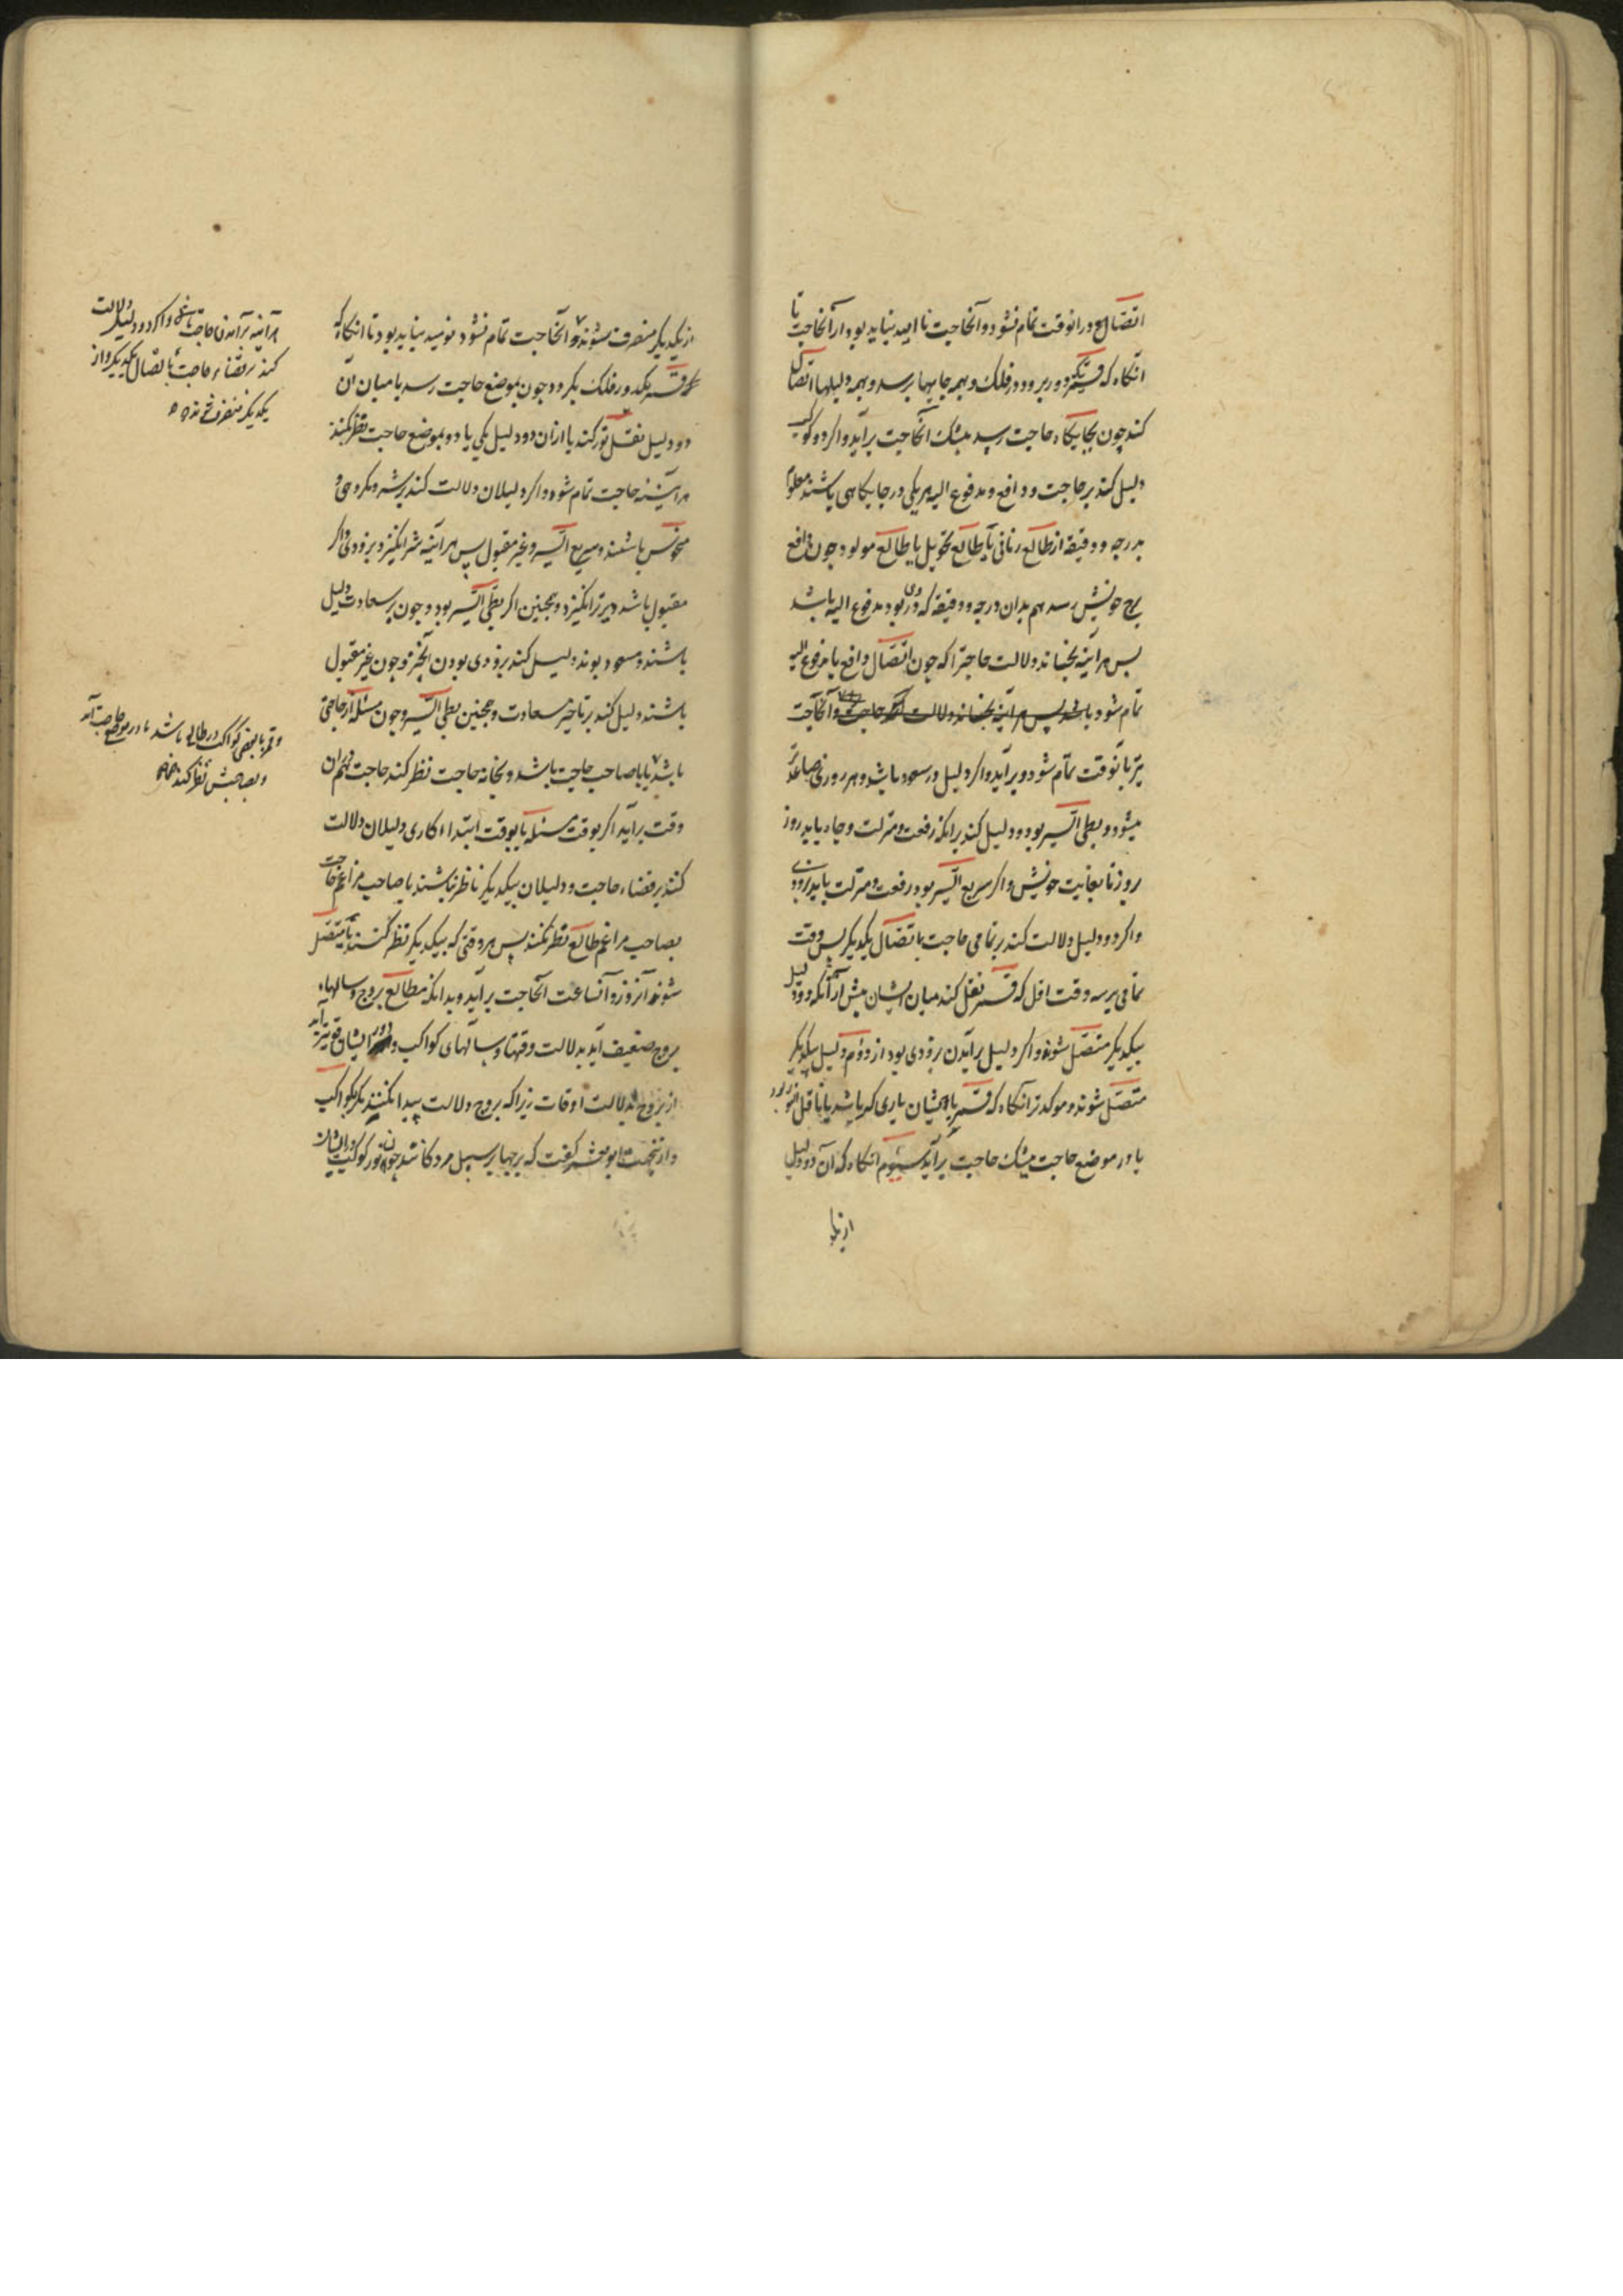 اتصال در انوقت تمام نشود و آنحاجت نا امید نباید بود از آنحاجت تا
انگاه که قمر دور برود در فلک و بهمه جایها برسد و بهمه دلیلها اتصال
کند چون بجایگاه حاجت رسد بیشک آنحاجت برآید و اگر دو کوکب
دلیل کند بر حاجت و دافع و مدفوع الیه هر یکی در جایگاهی باشند معلوم
بدرجه و دقیقه از طالع زمانی یا طالع تحویل یا طالع مولود چون دافع
برج خویش رسد هم بدان درجه و دقیقه که دروی بود مدفوع الیه باشد
پس هراینه بجنباند دلالت حاجترا که چون اتصال دافع با مدفوع الیه
تمام شود باشد پس هراینه بجنباند دلالت حاجت و آنحاجت
نیز بآنوقت تمام شود و برآید و اگر دلیل در سعود باشد و هر روزی صاعدتر
میشود و بطی السیر بود دلیل کند برانکه رفعت و منزلت و جاه یابد روز
بروز تا بغایت خویش و اگر سریع السیر بود رفعت و منزلت یابد بزودی
و اگر دو دلیل دلالت کند بر تمامی حاجت باتصال یکدیگر پس وقت
تمامی بر سه وقت اول که قمر نقل کند میان ایشان پیش از آنکه دو دلیل
بیکدیگر متصل شوند و اگر دلیل برآمدن بزودی بود از دوم دلیل بیکدیگر
متصل شوند و موکد تر انگاه که قمر با ایشان یاری گر باشد یا ناقل النور بود
یا در موضع حاجت بیشک حاجت برآید سیوم انگاه که آن دو دلیل
از یک
از یکدیگر منصرف شوند و آنحاجت تمام نشود نومید نباید بود تا انگاه که
قمر یکدور فلک بگردد چون بموضع حاجت رسد یا میان ان
دو دلیل نقل نور کند یا ازان دو دلیل یکی یا دو بموضع حاجت نظر کنند
هراینه حاجت تمام شود و اگر دلیلان دلالت کند بر شر و مکروهی و
منحوس باشند و سریع السیر و غیر مقبول پس هراینه شر انگیزد بزودی و اگر
مقبول باشد دیرتر انگیزد و همچنین اگر بطی السیر بود و چون بر سعادت دلیل
باشند و مسعود بوند دلیل کند بزودی بودن آنخیر و چون غیر مقبول
باشند دلیل کند بر تاخیر سعادت و همچنین بطی السیر و چون مسئله از حاجتی
باشد یا با صاحب حاجت باشد و بخانه حاجت نظر کند حاجت هم ان
وقت برآید اگر بوقت مسئله یا بوقت ابتداء کاری دلیلان دلالت
کنند بر قضاء حاجت و دلیلان بیکدیگر ناظر نباشند یا صاحب مزاعم حاجت
بصاحب مزاعم طالع نظر نکنند پس هر وقتی که بیکدیگر نظر کنند یا متصل
شوند آنروز و آنساعت آنحاجت برآید و بدانکه مطالع بروج و سالهاء
بروج ضعیف آید بدلالت وقتها و سالهای کواکب و دور ایشان قویتر آید
از بروج بدلالت اوقات زیرا که بروج دلالت پیدا نکنند مگر بکواکب
و از نجهت ابو معشر گفت که برجها بر سبیل مردگانند چون نور کواکب
هراینه برآمدن حاجت باشد و اگر دو دلیل دلالت
کند بر قضاء حاجت باتصال یکدیگر و از
یکدیگر منصرف شوند
و قمر با بعضی کواکب در طالع باشد یا در موضع حاجت آید
و بصاحبش نظر کند